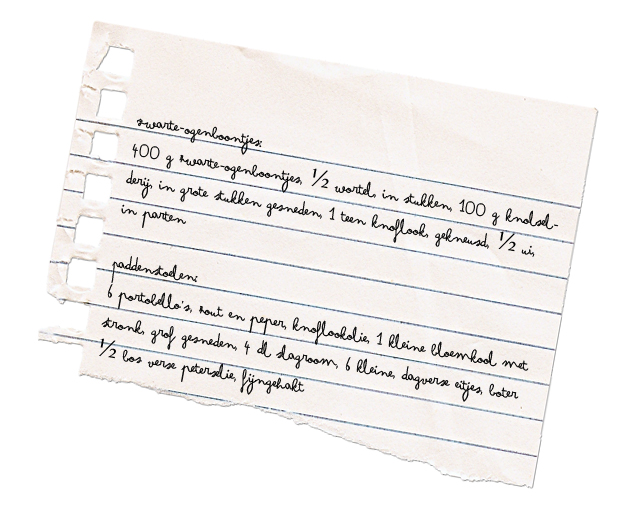 zwarte-ogenboontjes:
400 g zwarte-ogenboontjes, 1/2 wortel, in stukken, 100 g knolsel-
derij, in grote stukken gesneden, 1 teen knoflook, gekneusd, 1/2 ui,
in parten
paddenstoelen:
6 portobello's, zout en peper, knoflookolie, 1 kleine bloemkool met
stronk, grof gesneden, 4 dl slagroom, 6 kleine, dagverse eitjes, boter
1/2 bos verse peterselie, fijngehakt